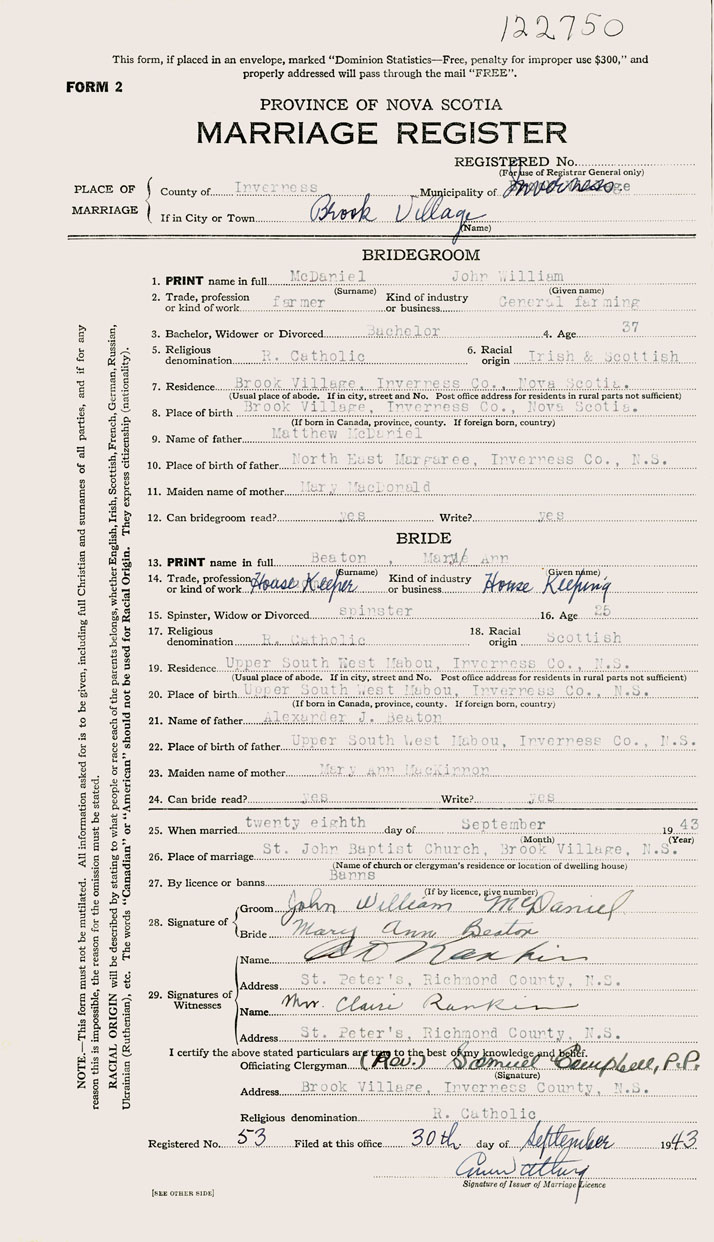 122750
This form, if placed in an envelope, marked "Dominion Statistics—Free, penalty for improper use $300," and
properly addressed will pass through the mail "FREE".
FORM 2
PROVINCE OF NOVA SCOTIA
MARRIAGE REGISTER
REGISTERED No.
(For use of Registrar General only)
PLACE OF MARRIAGE
County of Inverness Municipality of Inverness
If in City or Town Brook Village
(Name)
BRIDEGROOM
1. PRINT name in full McDaniel John William
(Surname) (Given name)
2. Trade, profession or kind of work farmer Kind of industry or business General farming
3. Bachelor, Widower or Divorced Bachelor 4. Age 37
5. Religious denomination R. Catholic 6. Racial origin Irish & Scottish
7. Residence Brook Village, Inverness Co., Nova Scotia.
(Usual place of abode. If in city, street and No. Post office address for residents in rural parts not sufficient)
8. Place of birth Brook Village, Inverness Co., Nova Scotia.
(If born in Canada, province, county. If foreign born, country)
9. Name of father Matthew McDaniel
10. Place of birth of father North East Margaree, Inverness Co., N.S.
11. Maiden name of mother Mary MacDonald
12. Can bridegroom read? yes Write? yes
BRIDE
13. PRINT name in full Beaton , Mary Ann
(Surname) Given name)
14. Trade, profession or kind of work House Keeper Kind of industry or business House Keeping
15. Spinster, Widow or Divorced spinster 16. Age 25
17. Religious denomination R. Catholic 18. Racial origin Scottish
19. Residence Upper South West Mabou, Inverness Co., N.S.
(Usual place of abode. If in city, street and No. Post office address for residents in rural parts not sufficient)
20. Place of birth Upper South West Mabou, Inverness Co., N.S.
(If born in Canada, province, county. If foreign born, country)
21. Name of father Alexander J. Beaton
22. Place of birth of father Upper South West Mabou, Inverness Co., N.S.
23. Maiden name of mother Mary Ann MacKinnon
24. Can bride read? yes Write? yes
25. When married twenty eighth day of September 1943
(Month) (Year)
26. Place of marriage St. John Baptist Church, Brook Village, N.S.
(Name of church or clergyman's residence or location of dwelling house)
27. By licence or banns Banns
(If by licence, give number)
28. Signature of
Groom John William McDaniel
Bride Mary Ann Beaton
29. Signatures of Witnesses
Name Rankin
Address St. Peter's, Richmond County, N.S.
Name Mrs. Claire Rankin
Address St. Peter's, Richmond County, N.S.
I certify the above stated particulars are true to the best of my knowledge and belief.
Officiating Clergyman (Rev.) Samuel Campbell, P.P.
(Signature)
Address Brook Village, Inverness County, N.S.
Religious denomination R. Catholic
Registered No. 53 Filed at this office 30th day of September 1943
Signature of Issuer of Marriage Licence
[SEE OTHER SIDE]
NOTE.—This form must not be mutilated. All information asked for is to be given, including full Christian and surnames of all parties, and if for any
reason this is impossible, the reason for the omission must be stated.
RACIAL ORIGIN will be described by stating to what people or race each of the parents belongs, whether English, Irish, Scottish, French, German, Russian,
Ukrainian (Ruthenian), etc. The words "Canadian" or "American" should not be used for Racial Origin. They express citizenship (nationality).